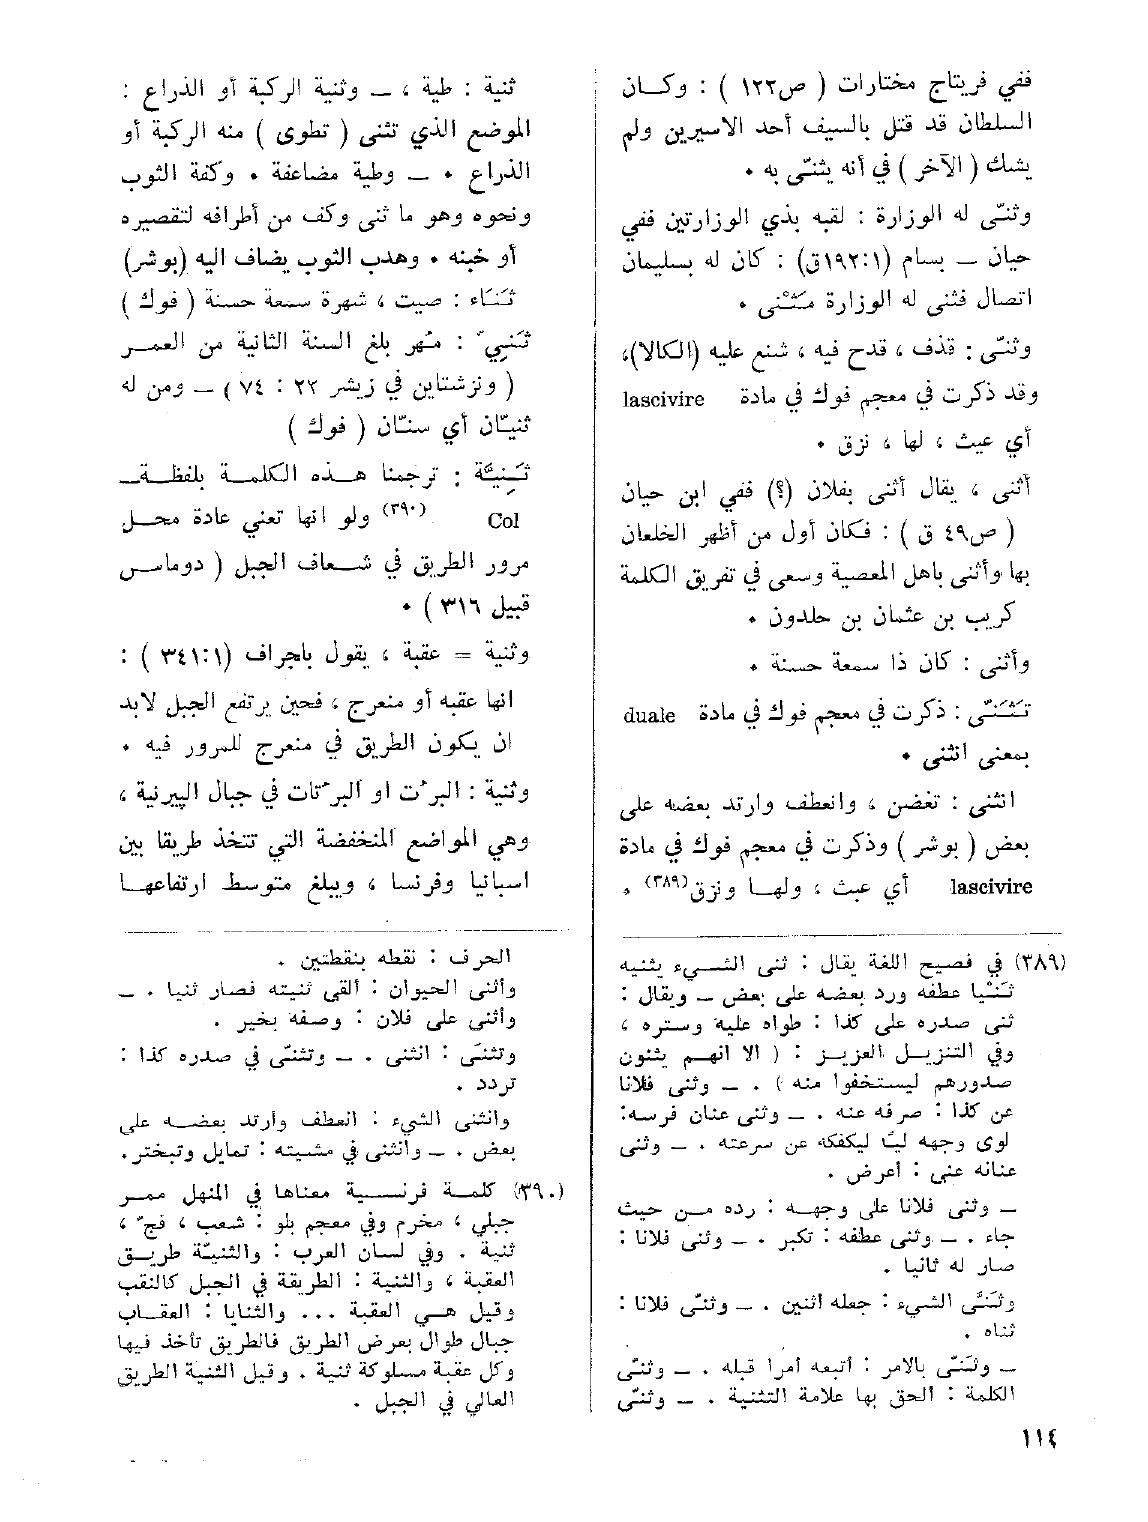 ففي فريتاج مختارات ( ص١٢٢ ) : وكـــان
السلطان قد قتل بالسيف أحد الاسيرين ولم
يشك ( الآخر ) في أنه يثنّى به ٠
وثنّى له الوزارة : لقبه بذي الوزارتين ففي
حيان ــ بسام (١٩٢:١ق) : كان له بسليمان
اتصال فثنى له الوزارة مَثْنى ٠
وثنّى : قذف ، قدح فيه ، شنع عليه (الكالا)،
وقد ذكرت في معجم فوك في مادة lascivire
أي عبث ، لها ، نزق ٠
أثنى ، يقال أثنى بفلان (؟) ففي ابن حيان
( ص٤٩ ق ) : فكان أول من أظهر الخلعان
بها وأثنى باهل المعصية وسعى في تفريق الكلمة
كريب بن عثمان بن خلدون ٠
وأثنى : كان ذا سمعة حسنة ٠
تَثَنَّى : ذكرت في معجم فوك في مادة duale
بمعنى انثنى ٠
انثنى : تغضن ، وانعطف وارتد بعضه على
بعض ( بوشر ) وذكرت في معجم فوك في مادة
lascivire أي عبث ، ولهــا ونزق(٣٨٩) ٠
(٣٨٩) في فصيح اللغة يقال : ثنى الشـــيء يثنيه
ثَنْيا عطفه ورد بعضه على بعض ــ ويقال :
ثنى صدره على كذا : طواه عليه وستره ،
وفي التنزيــل العزيــز : ( الا انهــم يثنون
صدورهم ليستخفوا منه ) . ــ وثنى فلانا
عن كذا : صرفه عنه . ــ وثنى عنان فرسه:
لوى وجهه ليكفكفه عن سرعته . ــ وثنى
عنانه عني : أعرض .
ــ وثنى فلانا على وجهــه : رده مــن حيث
جاء . ــ وثنى عطفه : تكبر . ــ وثنى فلانا :
صار له ثانيا .
وثَنَّى الشيء : جعله اثنين . ــ وثنّى فلانا :
ثناه .
ــ وثَنَّى بالامر : أتبعه أمرا قبله . ــ وثنّى
الكلمة : الحق بها علامة التثنية . ــ وثنّى
ثنية : طية ، ــ وثنية الركبة أو الذراع :
الموضع الذي تثنى ( تطوى ) منه الركبة أو
الذراع ٠ ــ وطية مضاعفة ٠ وكفة الثوب
ونحوه وهو ما ثنى وكف من أطرافه لتقصيره
أو خبنه ٠ وهدب الثوب يضاف اليه (بوشر)
ثَنَاء : صيت ، شهرة سمعة حسنة ( فوك )
ثَنِيّ : مُهر بلغ السنة الثانية من العمــر
( ونزشتاين في زيشر ٢٢ : ٧٤ ) ــ ومن له
ثنيتان أي سنتان ( فوك )
ثَنِيَّة : ترجمنا هــذه الكلمــة بلفظــة
Col (٣٩٠) ولو انها تعني عادة محــل
مرور الطريق في شــعاف الجبل ( دوماس
قبيل ٣١٦ ) ٠
وثنية = عقبة ، يقول باجراف (٣٤١:١ ) :
انها عقبه أو منعرج ، فحين يرتفع الجبل لابد
ان يكون الطريق في منعرج للمرور فيه ٠
وثنية : البرت او البرتات في جبال البيرنية ،
وهي المواضع المنخفضة التي تتخذ طريقا بين
اسبانيا وفرنسا ، ويبلغ متوسط ارتفاعهــا
الحرف : نقطه بنقطتين .
وأثنى الحيوان : ألقى ثنيته فصار ثنيا . ــ
وأثنى على فلان : وصفه بخير .
وتثنى : انثنى . ــ وتثنّى في صدره كذا :
تردد .
وانثنى الشيء : انعطف وارتد بعضــه على
بعض . ــ وانثنى في مشيته : تمايل وتبختر.
(٣٩٠) كلمــة فرنســية معناها في المنهل ممــر
جبلي ، مخرم وفي معجم بلو : شعب ، فجّ ،
ثنية . وفي لسان العرب : والثنيّة طريــق
العقبة ، والثنية : الطريقة في الجبل كالنقب
وقيل هــي العقبة ... والثنايا : العقــاب
جبال طوال بعرض الطريق فالطريق تأخذ فيها
وكل عقبة مسلوكة ثنية . وقيل الثنية الطريق
العالي في الجبل .
١١٤